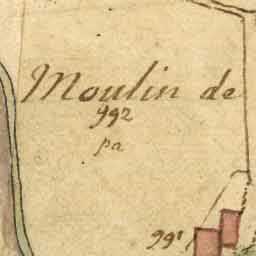 Moulin de
992
pa
991